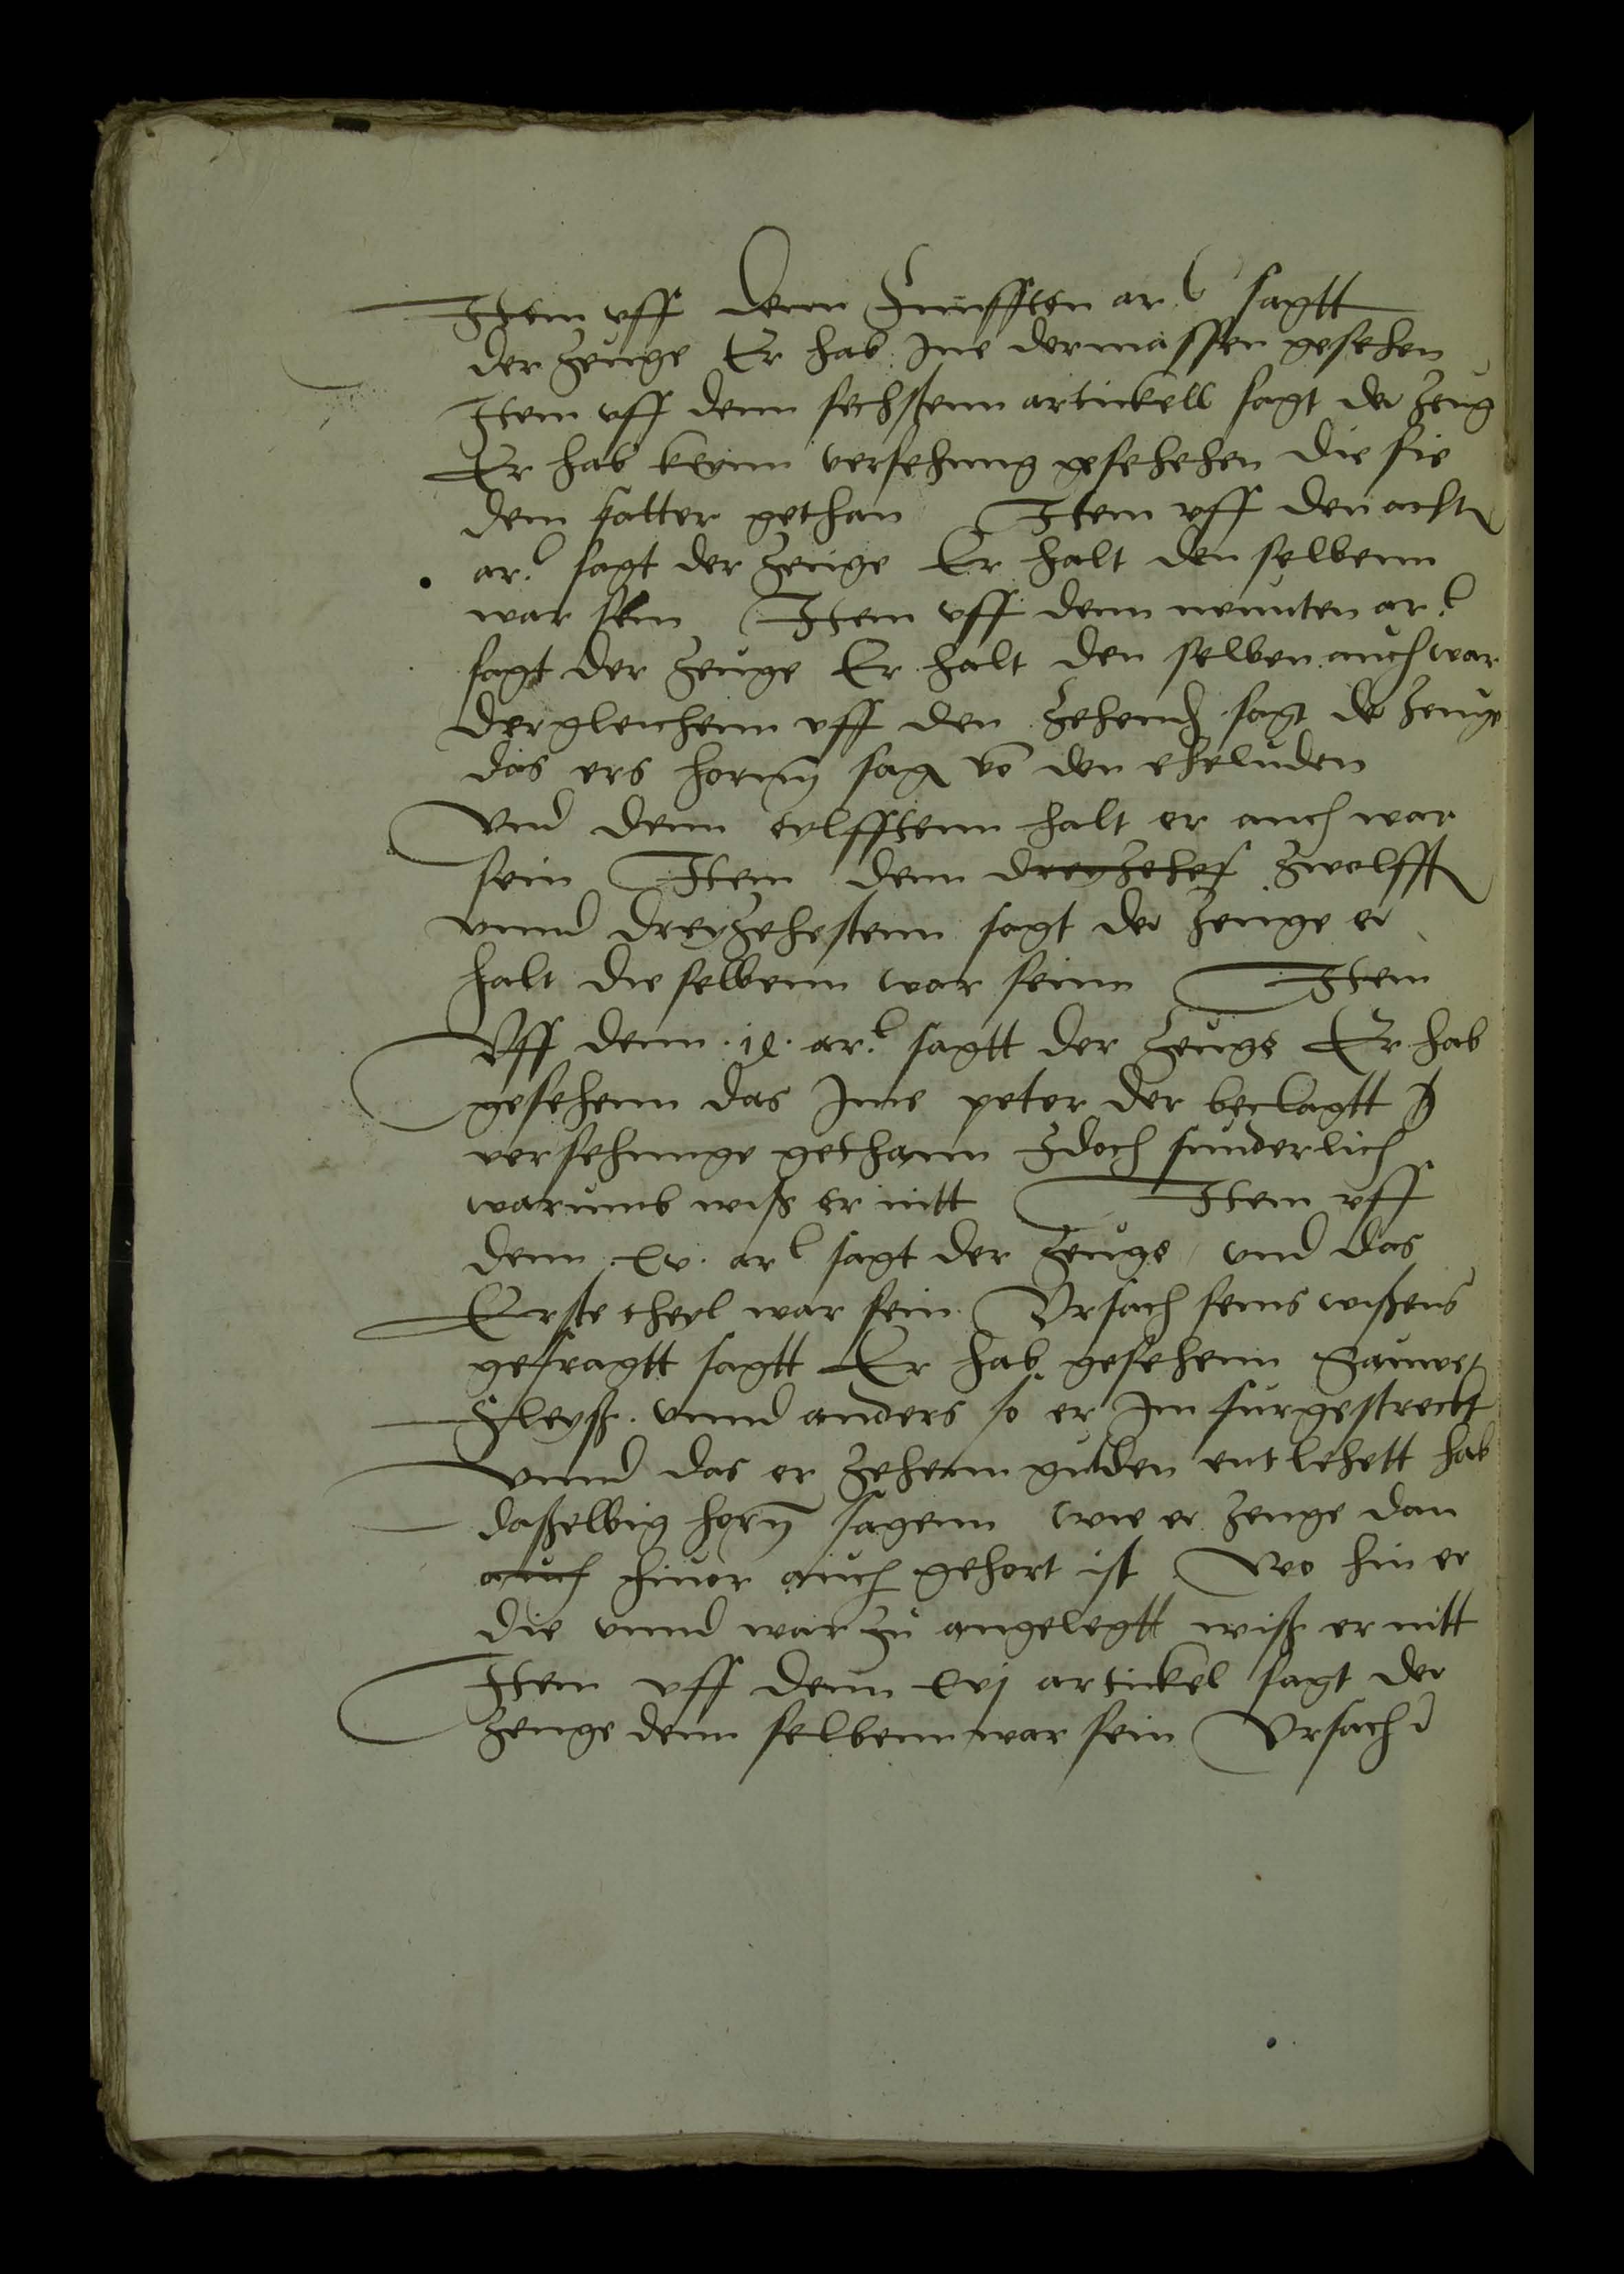 Item vff denn Funfften ar.l sagtt
der zeuge Er hab Ine dermassen gesehen
Item vff denn sechstenn artickell sagt der zeug
Er hab keynn versehung gesehehen die sie
dem vatter gethan Item vff den acht
ar.l sagt der zeuge Er halt den selbenn
war sein Item vff denn neunten ar.l
sagt der zeuge Er halt den selben auch war
dergleichenn vff den zehend sagt der zeuge
das ers horenn sag von den eheluden
Vnd denn eylfftenn halt er auch war
sein Item denn dreyzehest zwolfft
vnnd dreyzehestenn sagt der zeuge er
halt die selbenn war seinn Item
Vff denn .14. ar.l sagtt der zeuge Er hab
gesehenn das Ime peter der beclagtt
versehunge gethann Idoch sunderlich
warumb wiß er nitt Item vff
denn .xv. ar.l sagt der zeuge vnd das
Erste theyl war sein Vrsach seins wißens
gefragtt sagtt Er hab gesehenn
Fleyß vnnd anders so er Im furgestreckt
vnnd das er zehenn gulden entlehett hab
daßelbig horenn sagenn wie er zeuge dan
auch hiuor auch gehort ist Wo hin er
die vnnd war zu angelegtt wiß er nitt
Item vff denn xvj artickel sagt der
zeuge denn selbenn war sein Vrsach